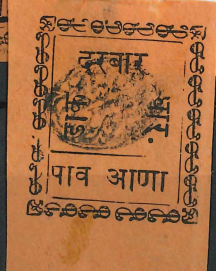 दरबार
धार.
पाव आणा